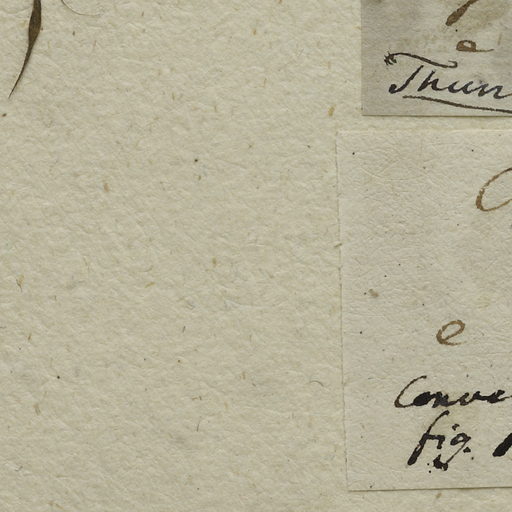 e
Thun
e
Conve
fig.